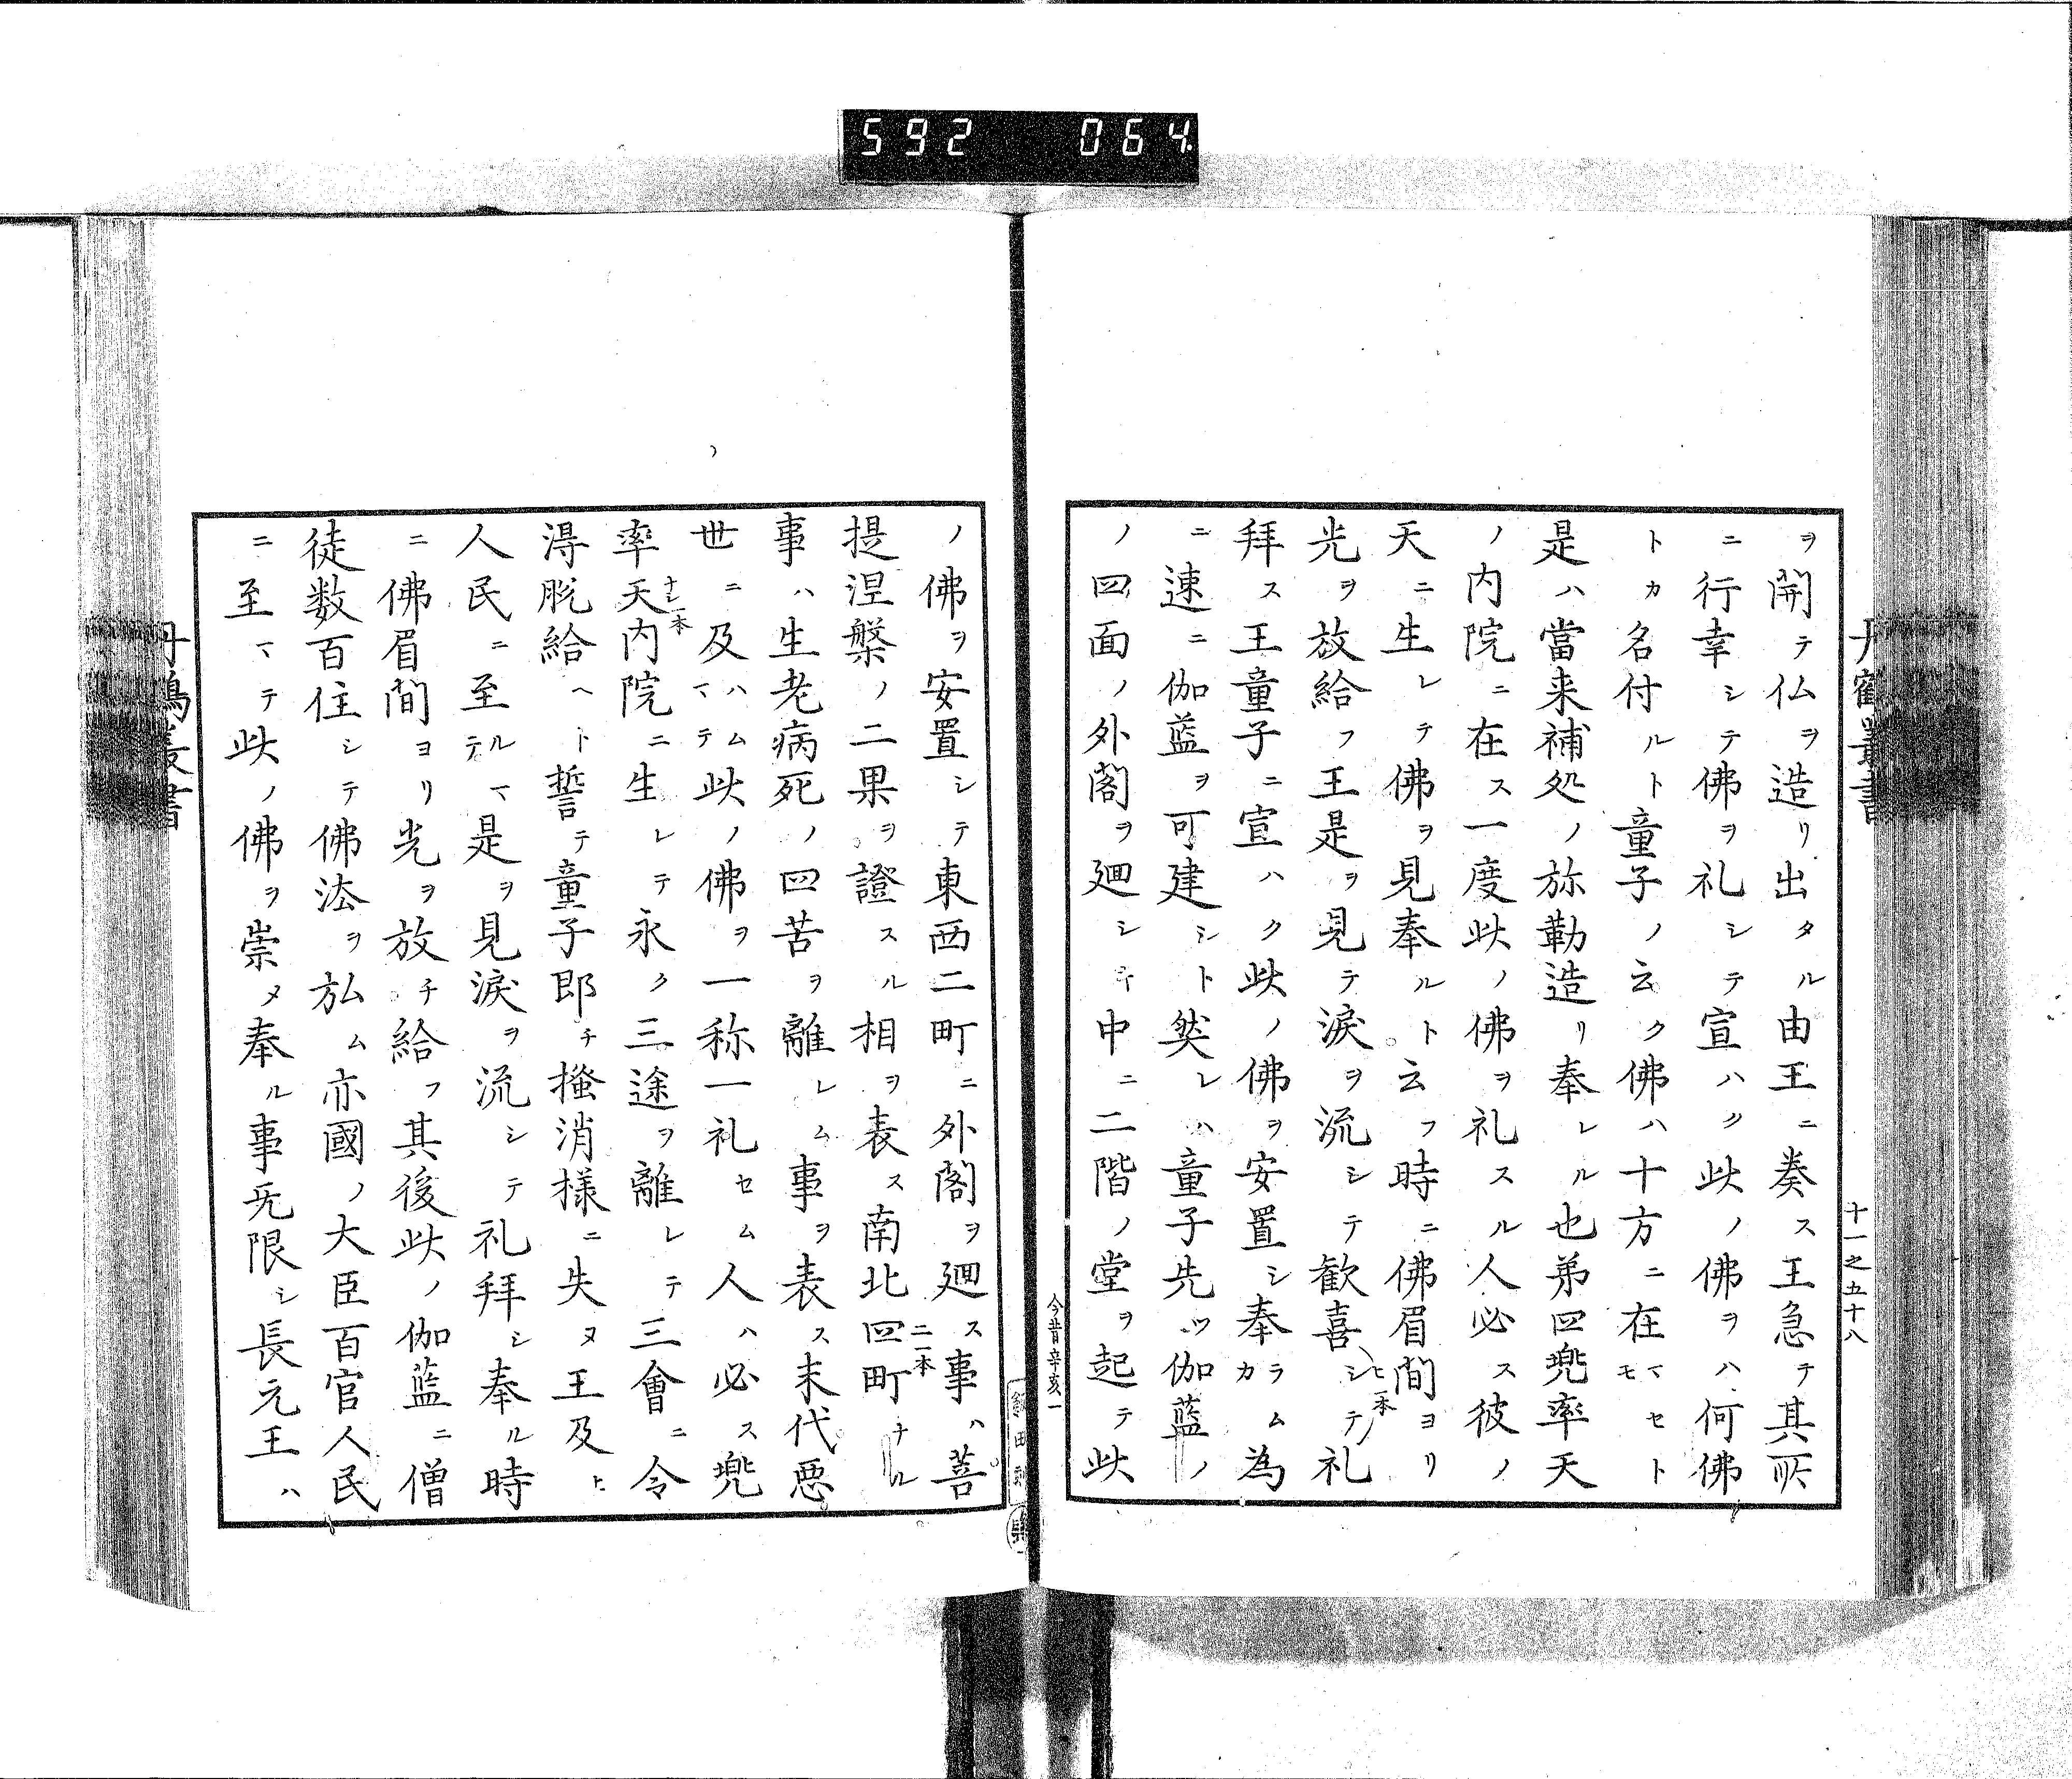 592 064
丹鶴叢書
十一之五十八
ヲ開テ仏ヲ造リ出タル由王ニ奏ス王急テ其所
ニ行幸シテ佛ヲ礼シテ宣ハク此ノ佛ヲハ何佛
トカ名付ルト童子ノ云ク佛ハ十方ニ在マセトモ
是ハ當来補処ノ弥勒造リ奉レル也弟四兜率天
ノ内院ニ在ス一度此ノ佛ヲ礼スル人必ス彼ノ
天ニ生レテ佛ヲ見奉ルト云フ時ニ佛眉間ヨリ
光ヲ放給フ王是ヲ見テ涙ヲ流シテ歓喜シテ礼
ヒ一本
拜ス王童子ニ宣ハク此ノ佛ヲ安置シ奉ラムカ為
ニ速ニ伽藍ヲ可建シト然レハ童子先ツ伽藍ノ
ノ四面ノ外閣ヲ廻シテ中ニ二階ノ堂ヲ起テ此
今昔辛亥一
ノ佛ヲ安置シテ東西二町ニ外閣ヲ廻ス事ハ菩
提涅槃ノ二果ヲ證スル相ヲ表ス南北四町ナル
二一本
事ハ生老病死ノ四苦ヲ離レム事ヲ表ス末代悪
世ニ及ハムマテ此ノ佛ヲ一称一礼セム人ハ必ス兜
率天内院ニ生レテ永ク三途ヲ離レテ三會ニ令
ナシ一本
得脱給ヘト誓テ童子即チ搔消様ニ失ヌ王及ヒ
人民ニ至ルマテ是ヲ見涙ヲ流シテ礼拜シ奉ル時
ニ佛眉間ヨリ光ヲ放チ給フ其後此ノ伽藍ニ僧
徒数百住シテ佛法ヲ弘ム亦國ノ大臣百官人民
ニ至マテ此ノ佛ヲ崇メ奉ル事无限シ長元王ハ
丹鶴叢書